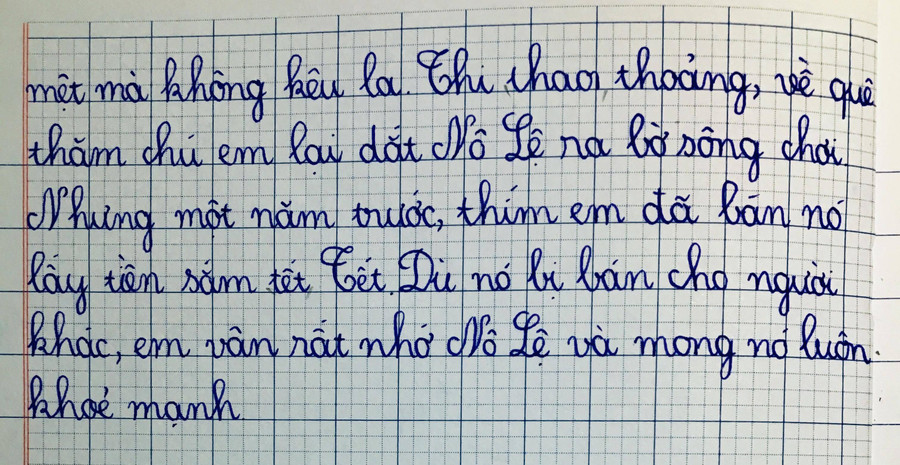 mệt mà không kêu la. Thi thoảng, về quê
thăm chú em lại dắt Nô Lệ ra bờ sông chơi.
Nhưng một năm trước, thím em đã bán nó
lấy tiền sắm tết Tết. Dù nó bị bán cho người
khác, em vẫn rất nhớ Nô Lệ và mong nó luôn
khoẻ mạnh